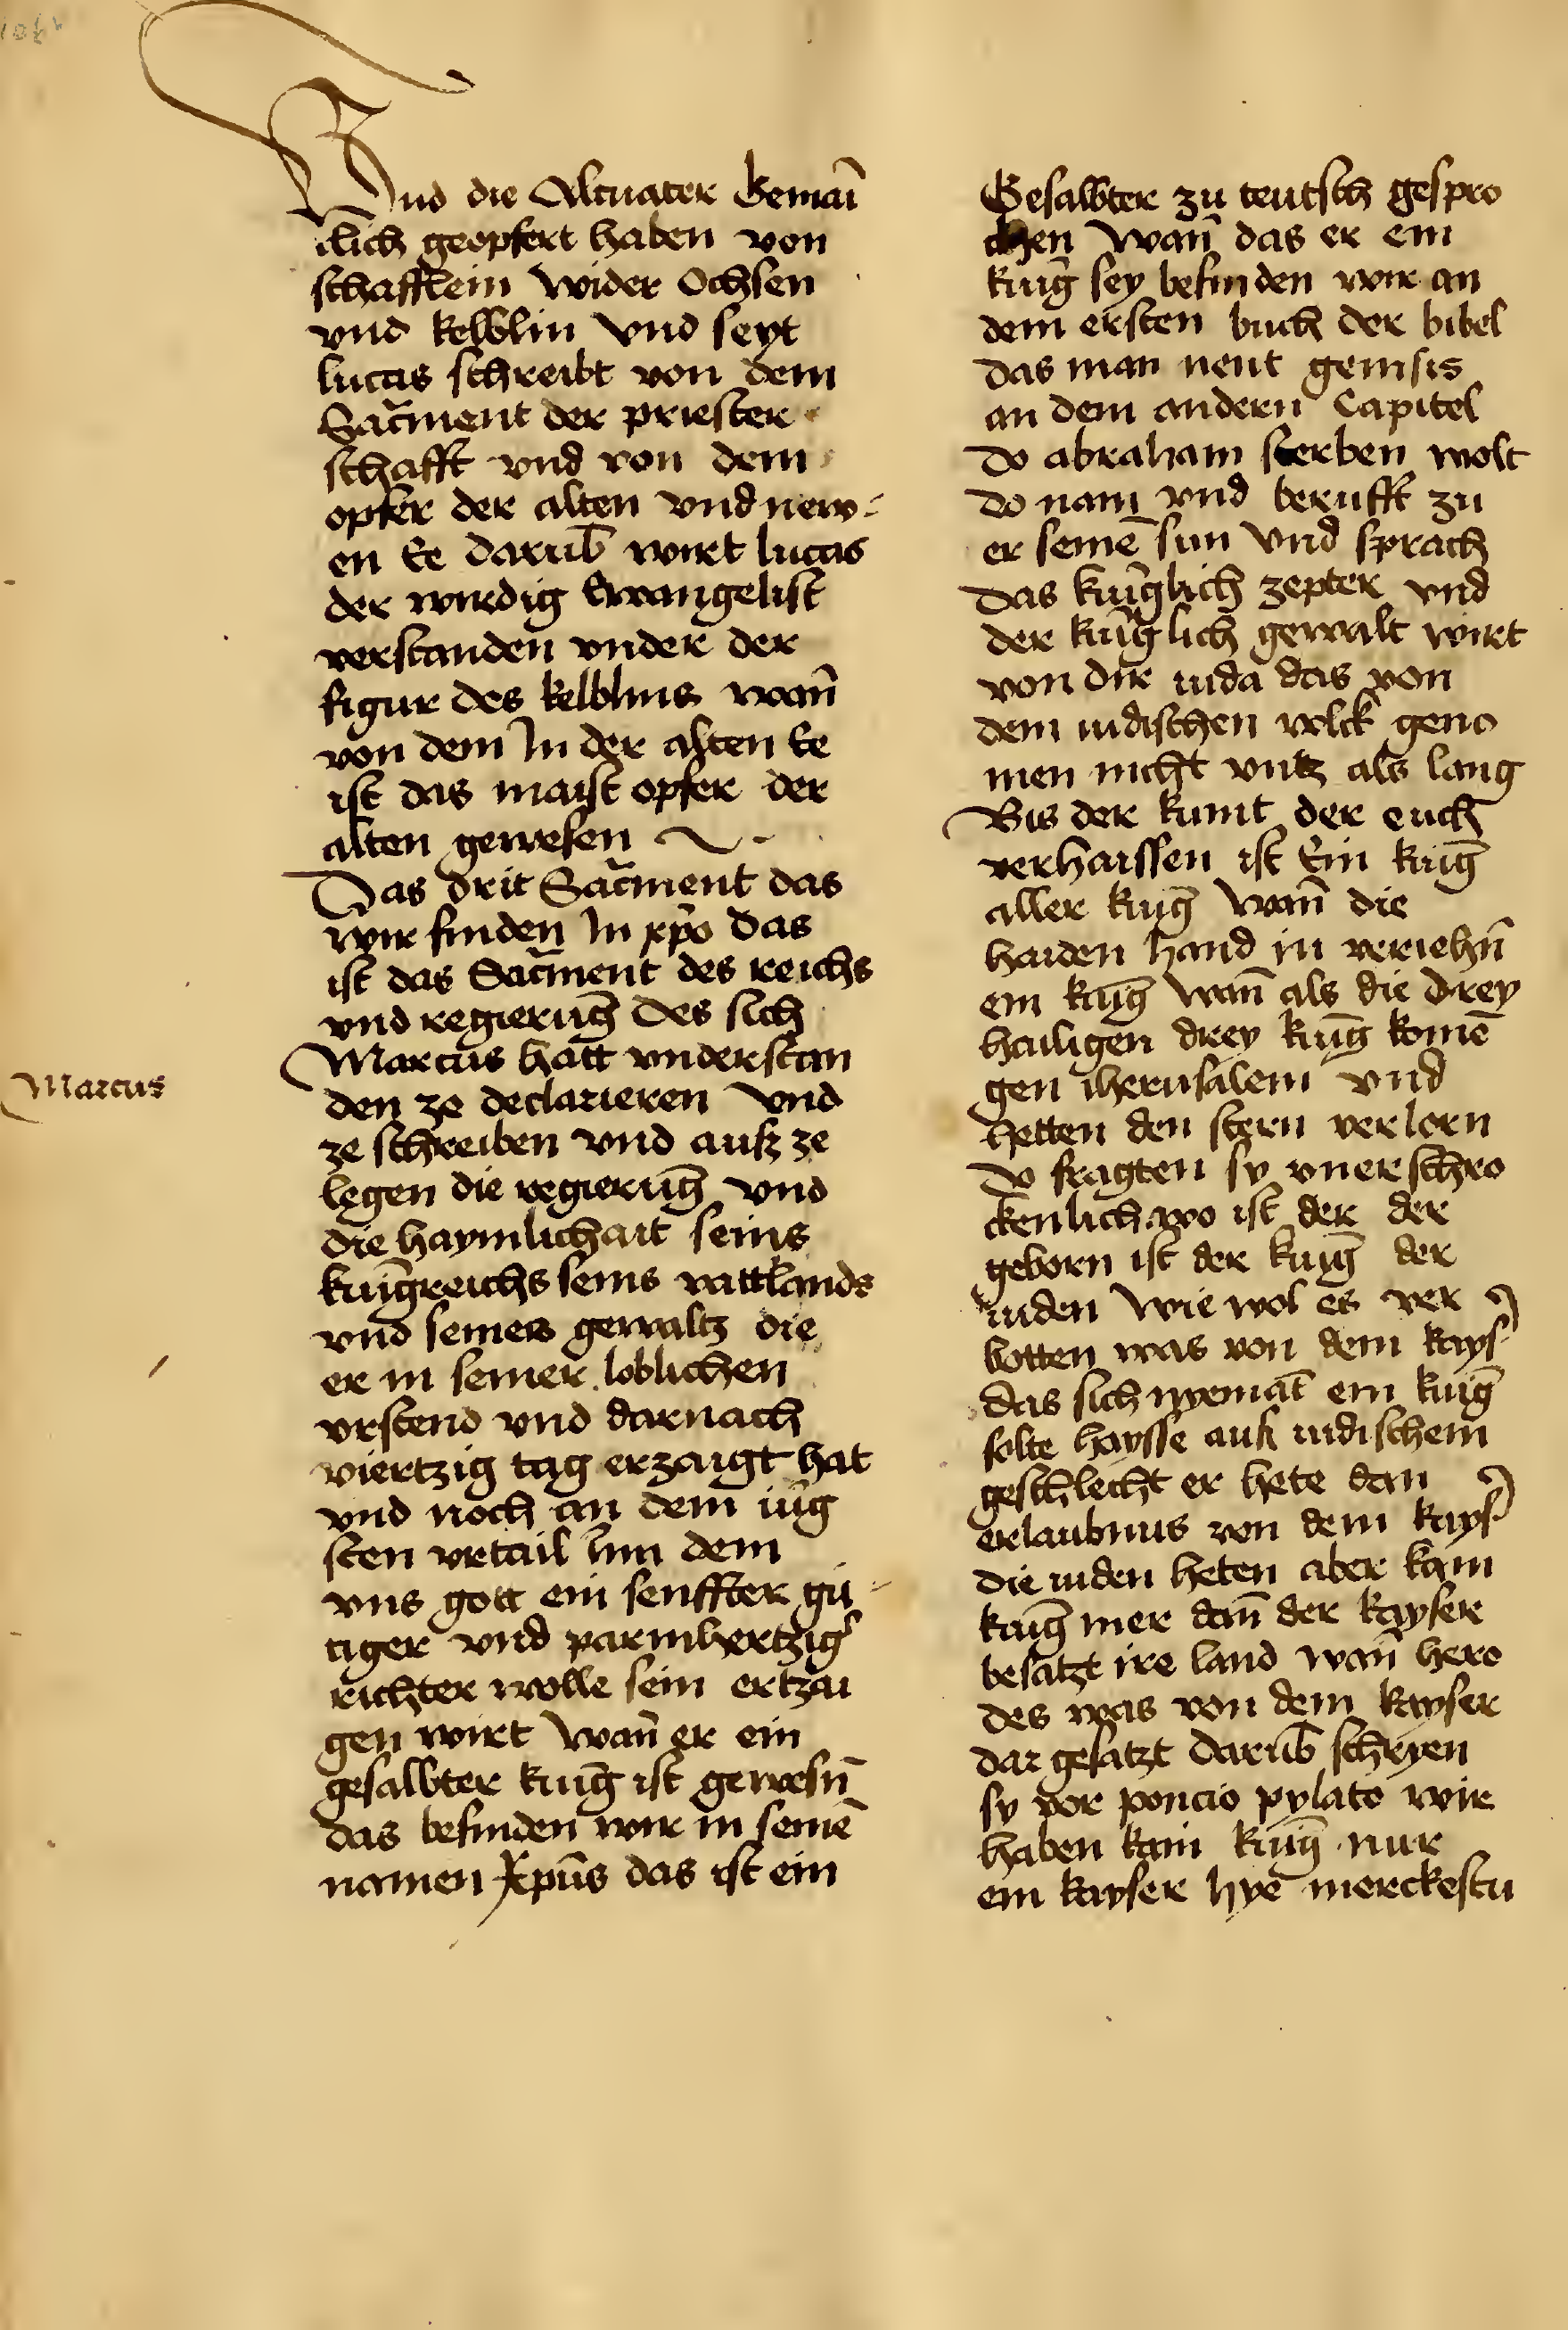 Und die Altuater Gemai͞
clich geopfert haben von
schafflein Wider Ochsen
vnd kelblin Vnd seyt
lucas schreibt von dem
Sac̄ment der priester
schafft vnd von dem
opfer der alten vnd new-
en Ee Darub̄ wirt lucas
der wirdig Ewangelist
verstanden vnder der
figur des kelblins wan̄
von dem In der alten Ee
ist das maist opfer der
alten gewesen
Das drit Sac̄ment das
wir finden In xp̄o Das
ist das Sac̄ment des reichs
vnd regieruḡ Des sich
Marcus hatt vnderstan
Marcus
den ze declarieren Vnd
ze schreiben vnd auß ze
legen die regieruḡ Vnd
die haymlichait seins
kuīgreichs seins vattlands
vnd seines gewaltz die
er in seiner loblichen
vrstend vnd darnach
viertzig tag erzaigt hat
vnd noch an dem iūg
sten vrtail Inn dem
vns gott ein senffter gu-
tiger vnd parmhertzig̕
richter wolle sein ertzai
gen wirt Wan̄ er ein
gesalbter kuīg ist gewesn̄
das befinden wir in seine͞
namen Xp̄us das ist ein
Gesalbter zu teutsch gespro
chen Wan̄ das er ein
kuīg sey befinden wir an
dem ersten buch der bibel
das man nent genisis
an dem andern Capitel
Do abraham sterben wolt
Do nam vnd berufft zu
er seine͞ sun Vnd sprach
Das kuīglich zepter vnd
der kuīglich gewalt wirt
von dir iuda das von
dem iudischen volck geno
men nicht vntz als lang
Bis der kumt der euch
verhaissen ist Ein kuīg
aller kuīg Wan̄ die
haiden hand in veriehn̄
ein kuīg Wan̄ als die drey
hailigen drey kuīg kome͞
gen iherusalem vnd
hetten den stern verlorn
Do fragten sy vnerschro
ckenlich wo ist der der
geborn ist der kuīg der
iuden Wie wol es ver
botten was von dem kays̕
das sich nyemāt ein kuīg
solte haysse auß iudischem
geschlecht er hete dan
erlaubnus von dem kays̕
die iuden heten aber kain
kuīg mer dan̄ der kayser
besatzt ire land wan̄ hero
des was von dem kayser
dar gesatzt Darub̄ schryen
sy vor poncio pylato wir
haben kain kuīg nur
ein kayser hye merckestu